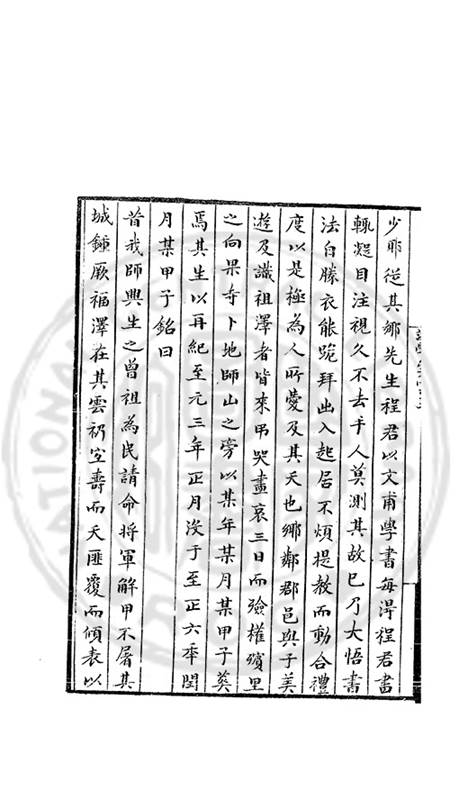 少那從其鄉先生程君以文甫學書每得程君書
輒凝目注視久不去手人莫測其故已乃大悟書
法白勝衣能跪拜出入起居不煩提教而動合禮
度以是極為人所愛及其夭也鄉鄰郡邑與子美
遊及識祖澤者皆來弔哭盡哀三日而殮權殯里
之向杲寺卜地師山之旁以某年某月某甲子葬
焉其生以再紀至元三年正月沒于至正六年閏
月某甲子銘曰
昔我師與生之曾祖為民請命將軍解甲不屠其
城鍾厥福澤在其雲礽宜壽而夭匪覆而傾表以